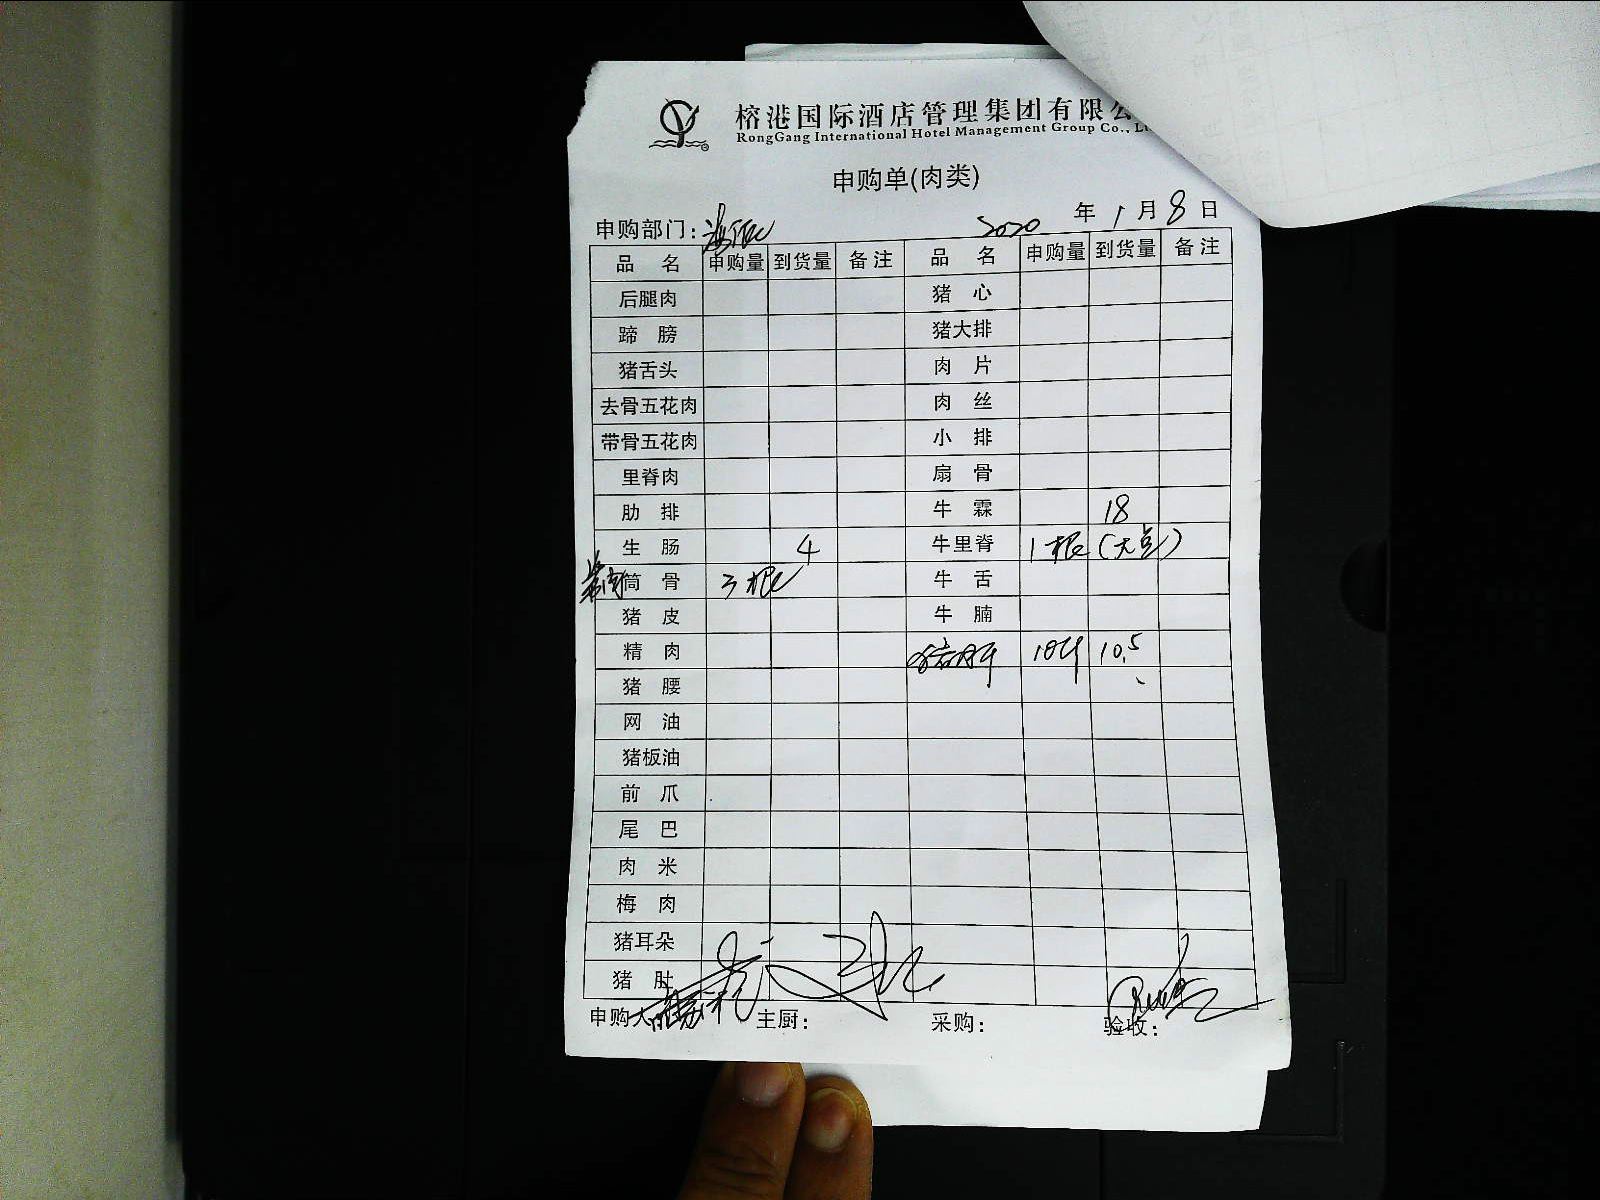 榕港国际酒店管理集团有限公
RongGang International Hotel Management Group Co., L
申购单(肉类)
申购部门: 2020 年 1 月 8 日
品 名 申购量 到货量 备注 品 名 申购量 到货量 备注
后腿肉 猪 心
蹄 膀 猪大排
猪舌头 肉 片
去骨五花肉 肉 丝
带骨五花肉 小 排
里脊肉 扇 骨
肋 排 牛 霖 18
生 肠 4 牛里脊 1根 (大点)
筒 骨 3根 牛 舌
猪 皮 牛 腩
精 肉 猪肝 10斤 10.5
猪 腰
网 油
猪板油
前 爪
尾 巴
肉 米
梅 肉
猪耳朵
猪 肚
申购人 主厨: 采购: 验收: